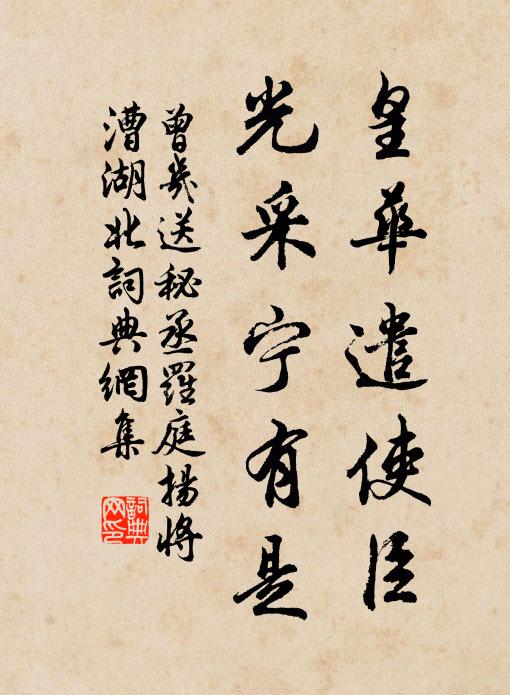 皇華遣使臣
光采宁有是
曾幾送秘丞羅庭揚將
漕湖北詞典網集
詞典
网印